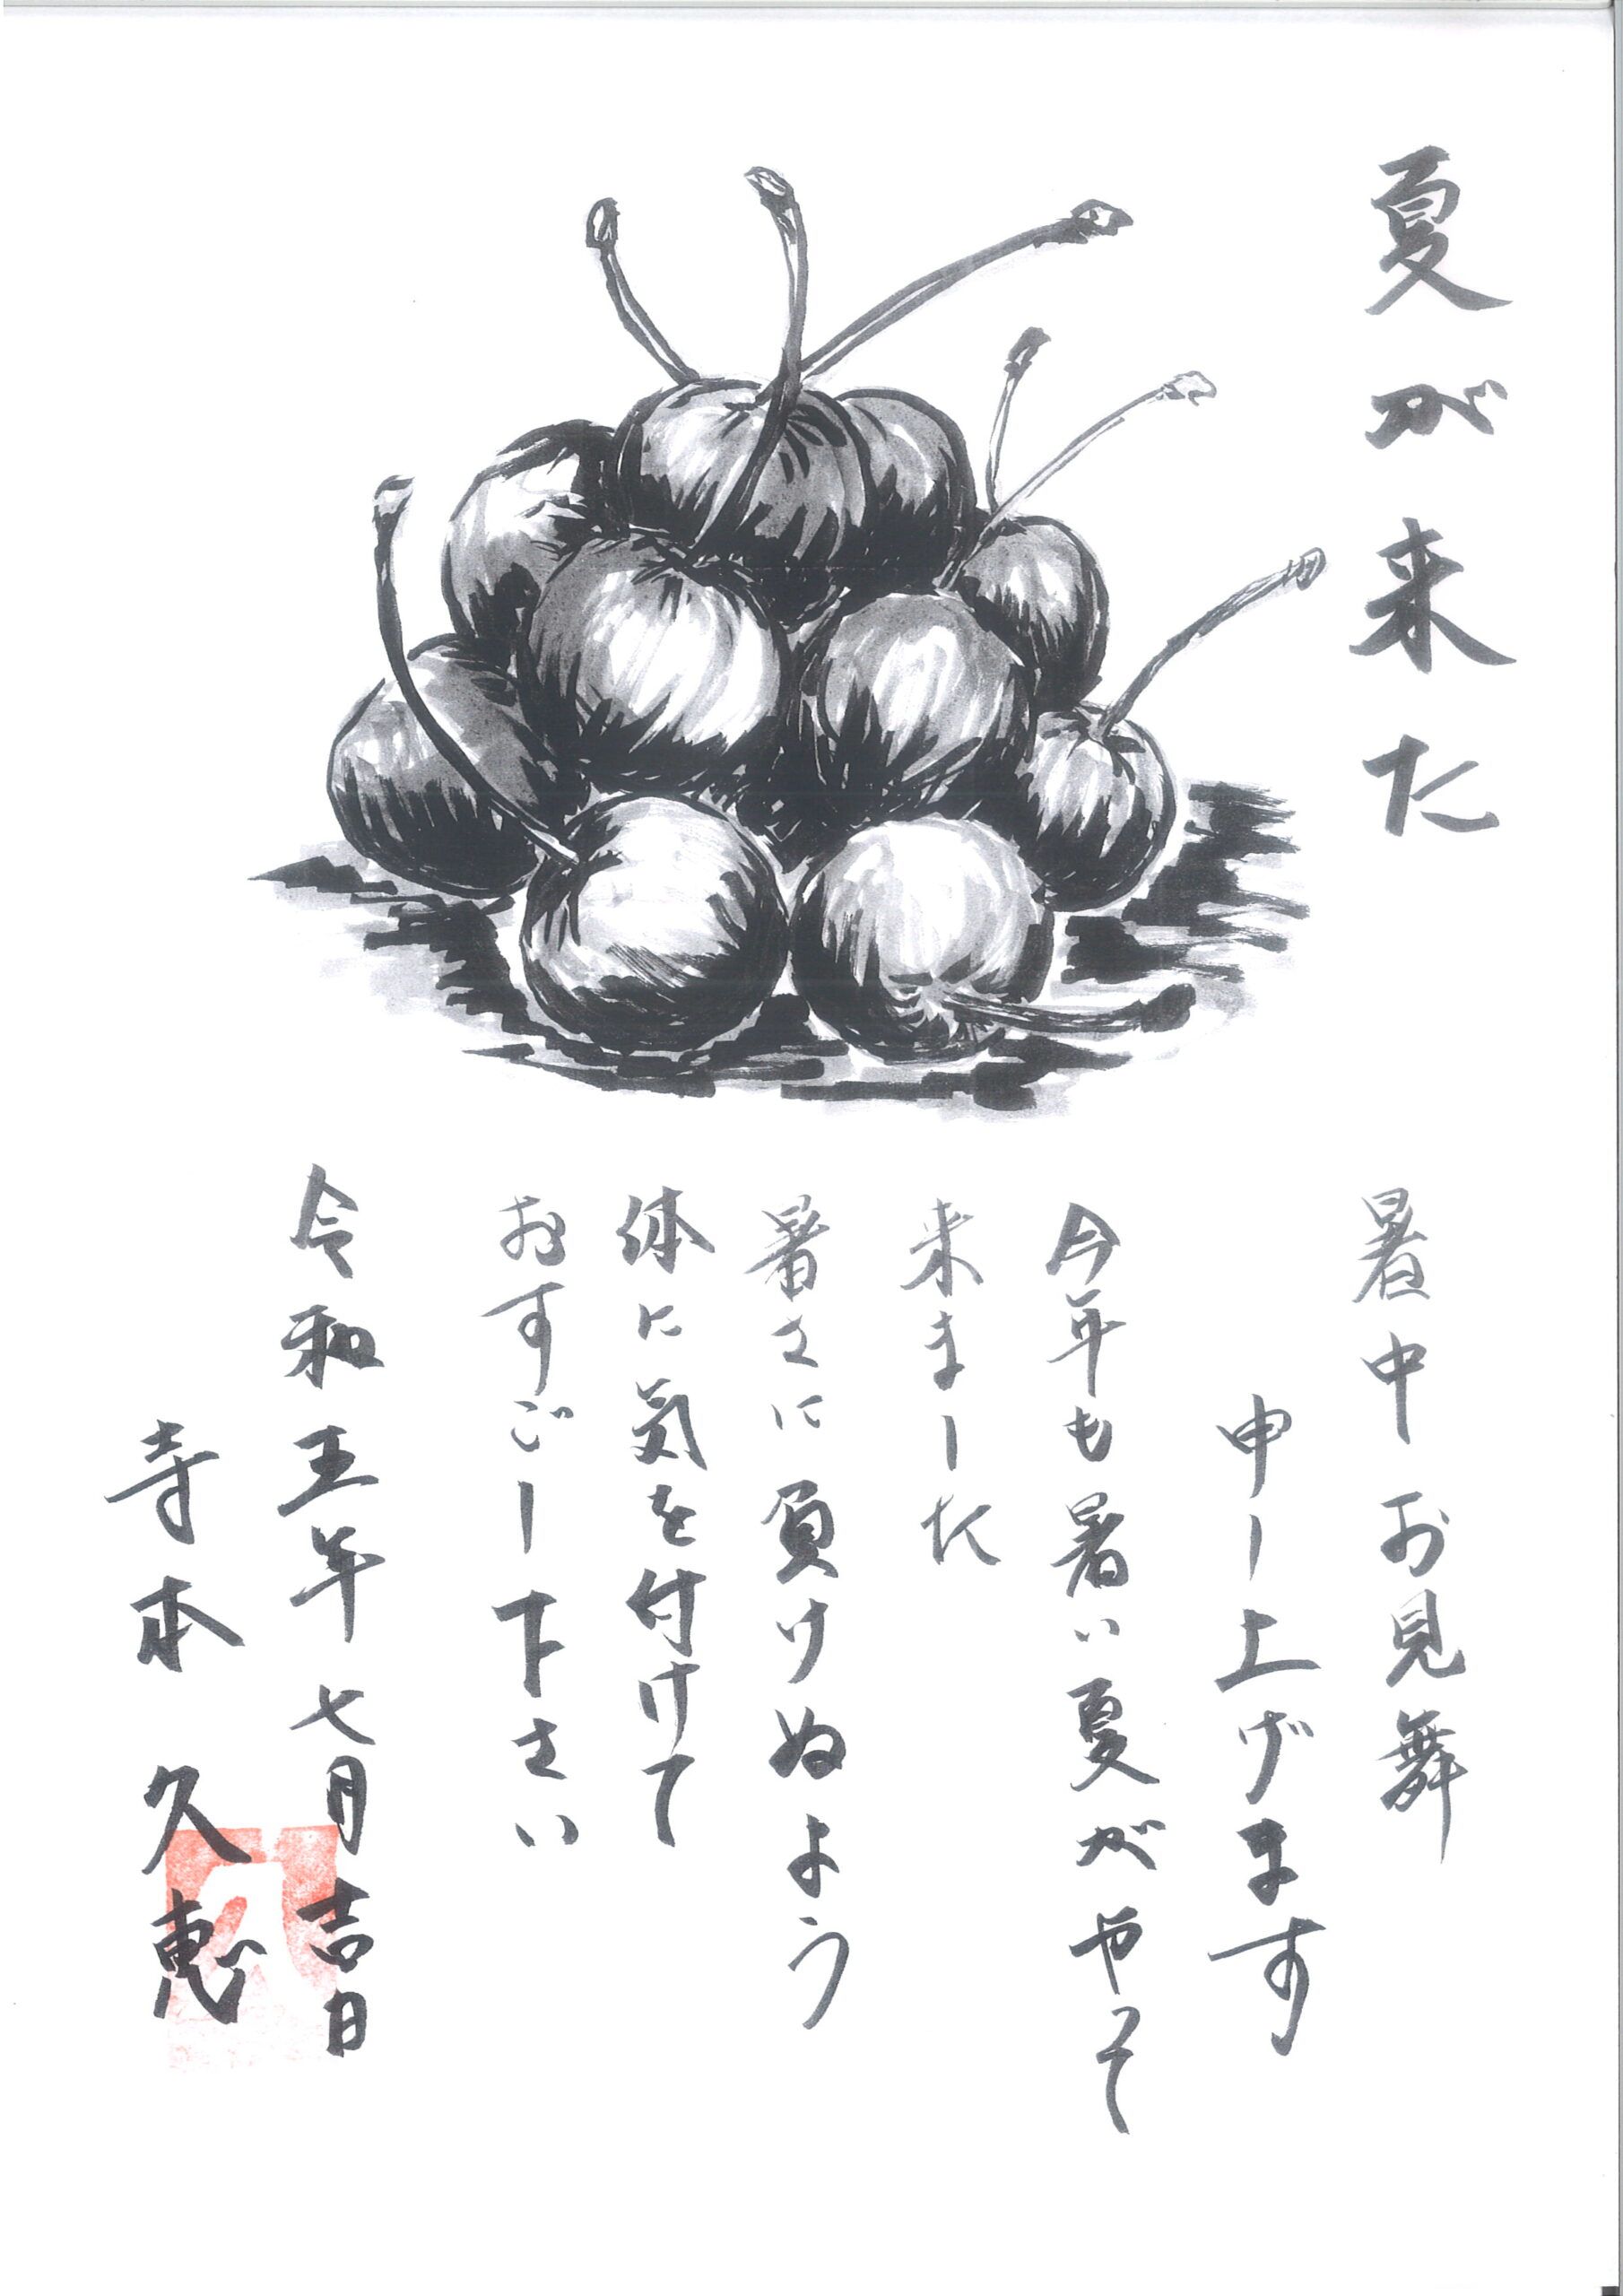 夏が来た
暑中お見舞
申し上げます
今年も暑い夏がやって
来ました
暑さに負けぬよう
体に気を付けて
おすごし下さい
令和五年七月吉日
寺本久恵